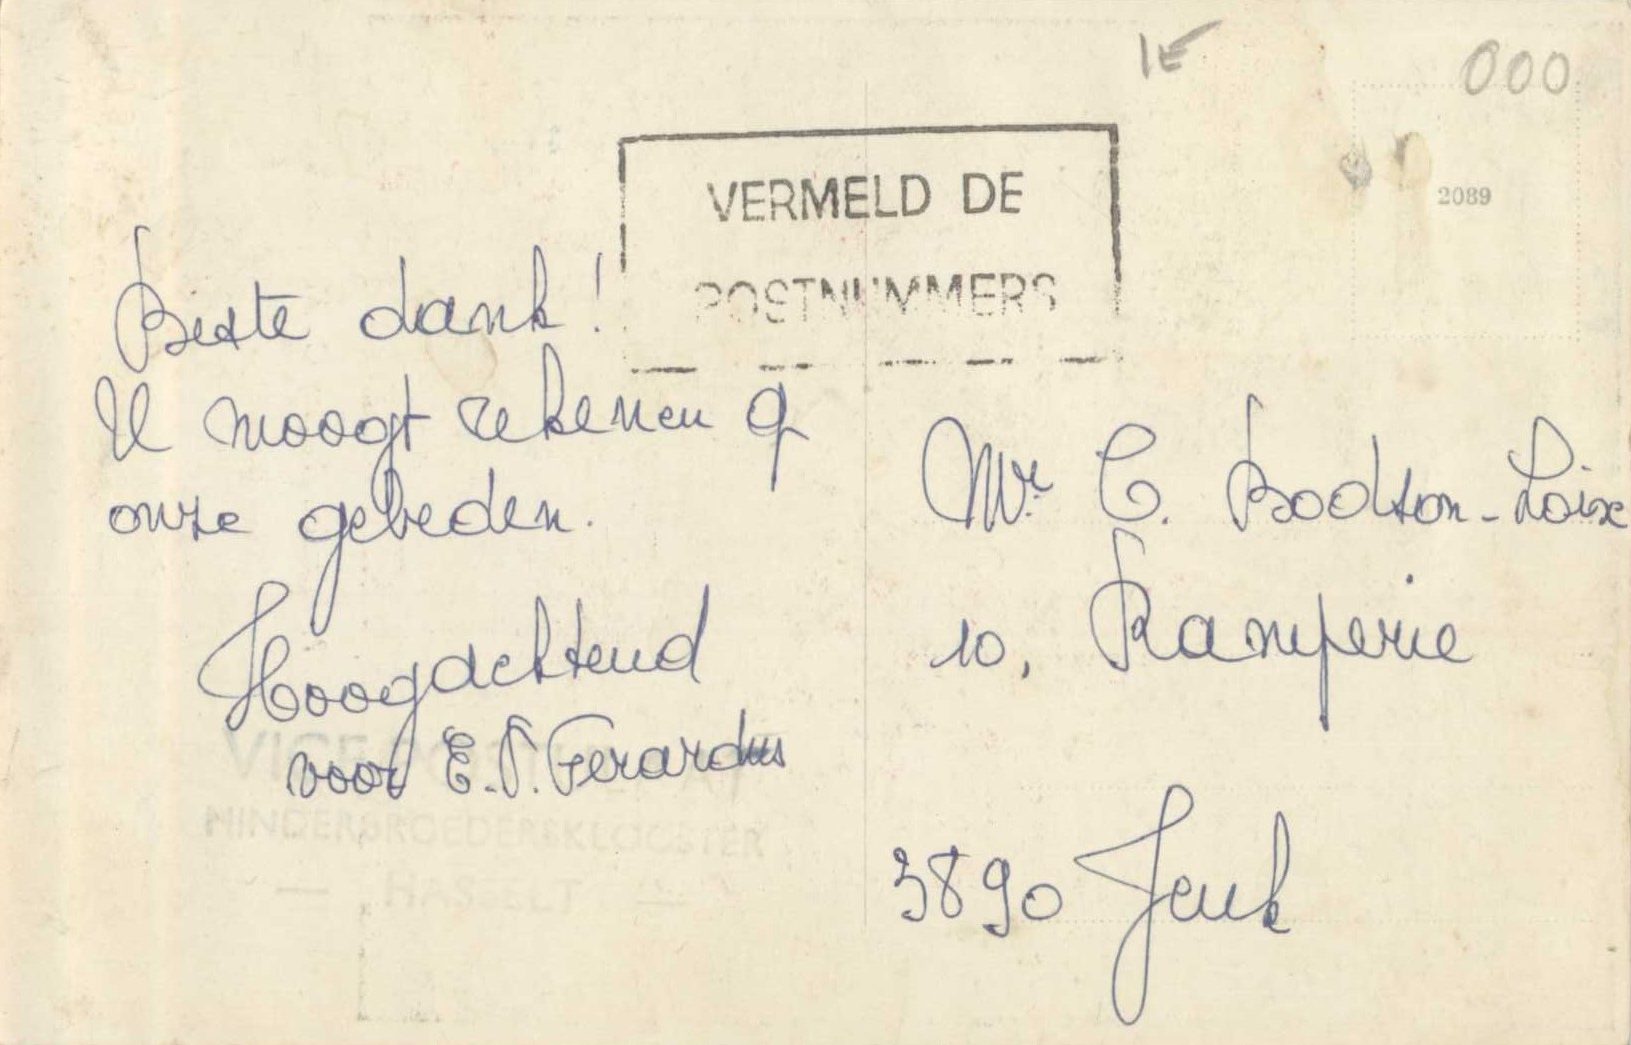 1E
000
VERMELD DE
POSTNUMMERS
2089
Beste dank!
U moogt rekenen op
onze gebeden.
Hoogachtend
voor E.P. Gerardus
MINDERBROEDERSKLOOSTER
— HASSELT —
Mr. C. Bodson-Loix
10, Ramperie
3890 Jeuk